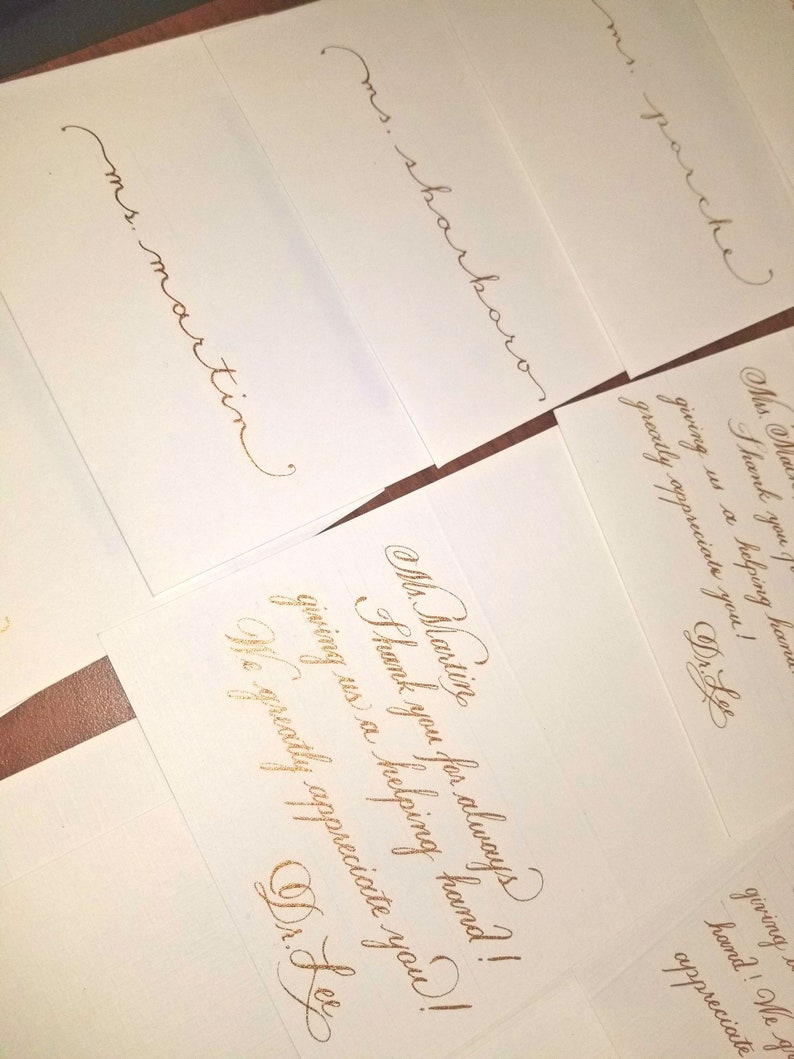 ms. martin
ms. sharboro
ms. parche
Ms. Martin
Thank you for always
giving us a helping hand!
We greatly appreciate you!
Dr. Lee
Mrs.
Thank you
giving us a helping hand
greatly appreciate you!
Dr Lee
giving
hand! We
appreciate